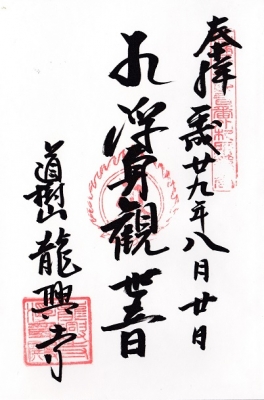 奉拝 平成廿九年八月廿日
浮身觀世音
道樹山 龍興寺